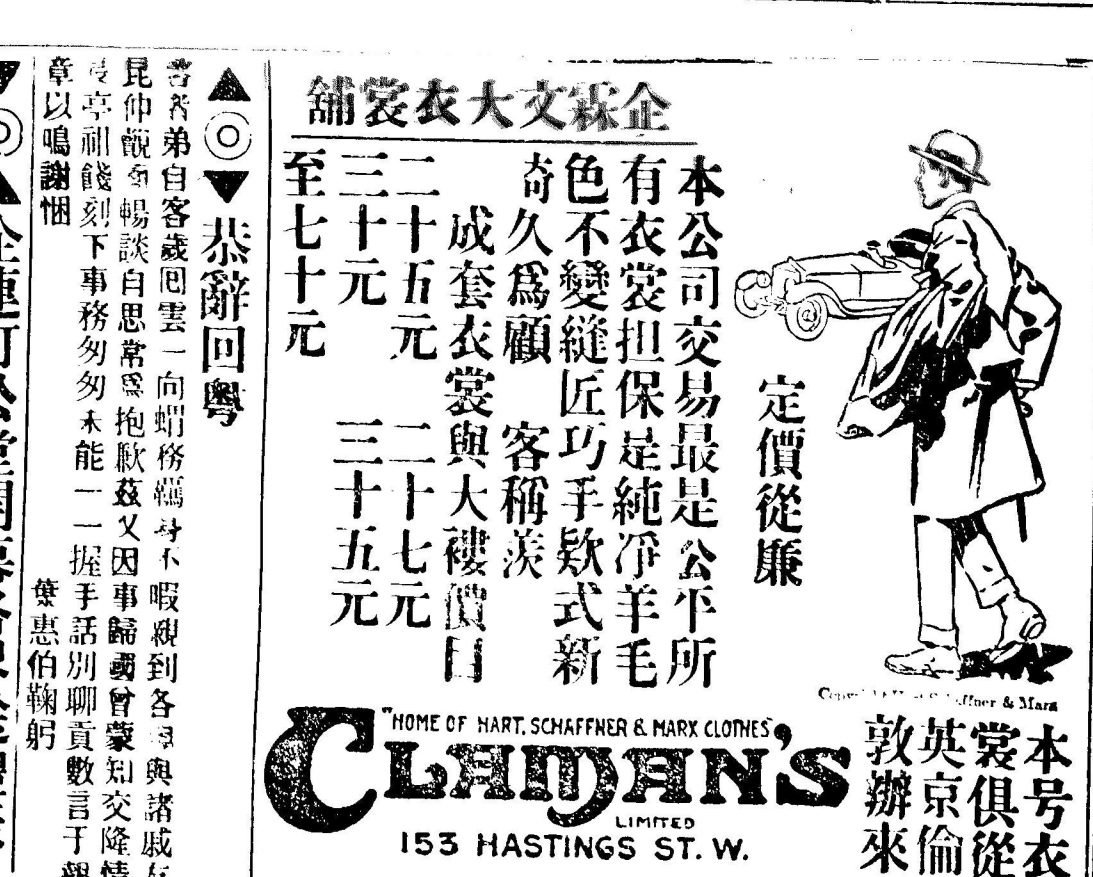 企霖文大衣裳舖
定價從廉
本公司交易最是公平所
有衣裳担保是純凈羊毛
色不變縫匠巧手欵式新
奇久爲顧 客稱羨
成套衣裳與大褸價目
二十五元 二十七元
三十元 三十五元
至七十元
Schaffner & Marx
本号衣
裳俱從
英京倫
敦辦來
"HOME OF HART, SCHAFFNER & MARX CLOTHES"
CLAMAN'S
LIMITED
153 HASTINGS ST. W.
恭辭回粵
弟自客歲囘雲一向蝟務羈身不暇親到各埠與諸戚友
昆仲觀面暢談自思常爲抱歉茲又因事歸國曾蒙知交隆情
亭祖餞刻下事務匆匆未能一一握手話別聊貢數言于報
章以鳴謝悃
葉惠伯鞠躬